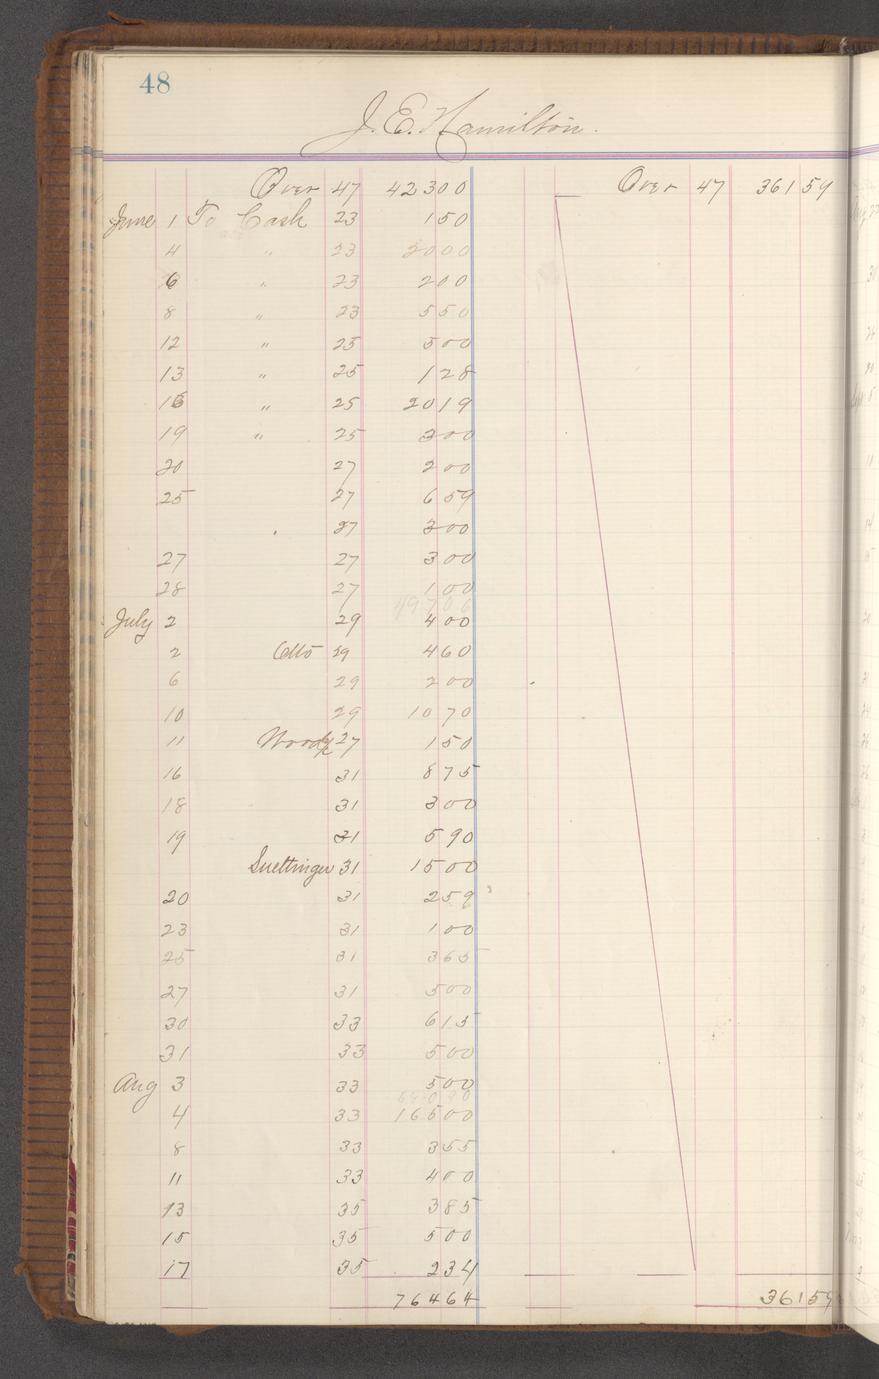 48
J. E. Hamilton.
Over 47 42300 Over 47 36159
June 1 To Cash 23 150
4 " 23 2000
6 " 23 200
8 " 23 550
12 " 25 500
13 " 25 128
16 " 25 2019
19 " 25 300
20 27 200
25 27 659
27 300
27 27 300
28 27 100
49706
July 2 29 400
2 Otto 29 460
6 29 200
10 29 1070
11 27 150
16 31 875
18 31 300
19 31 590
Suettinger 31 1500
20 31 259
23 31 100
25 31 365
27 31 500
30 33 615
31 33 500
Aug 3 33 500
4 33 16500
8 33 355
11 33 400
13 35 385
15 35 500
17 35 234
76464 36159